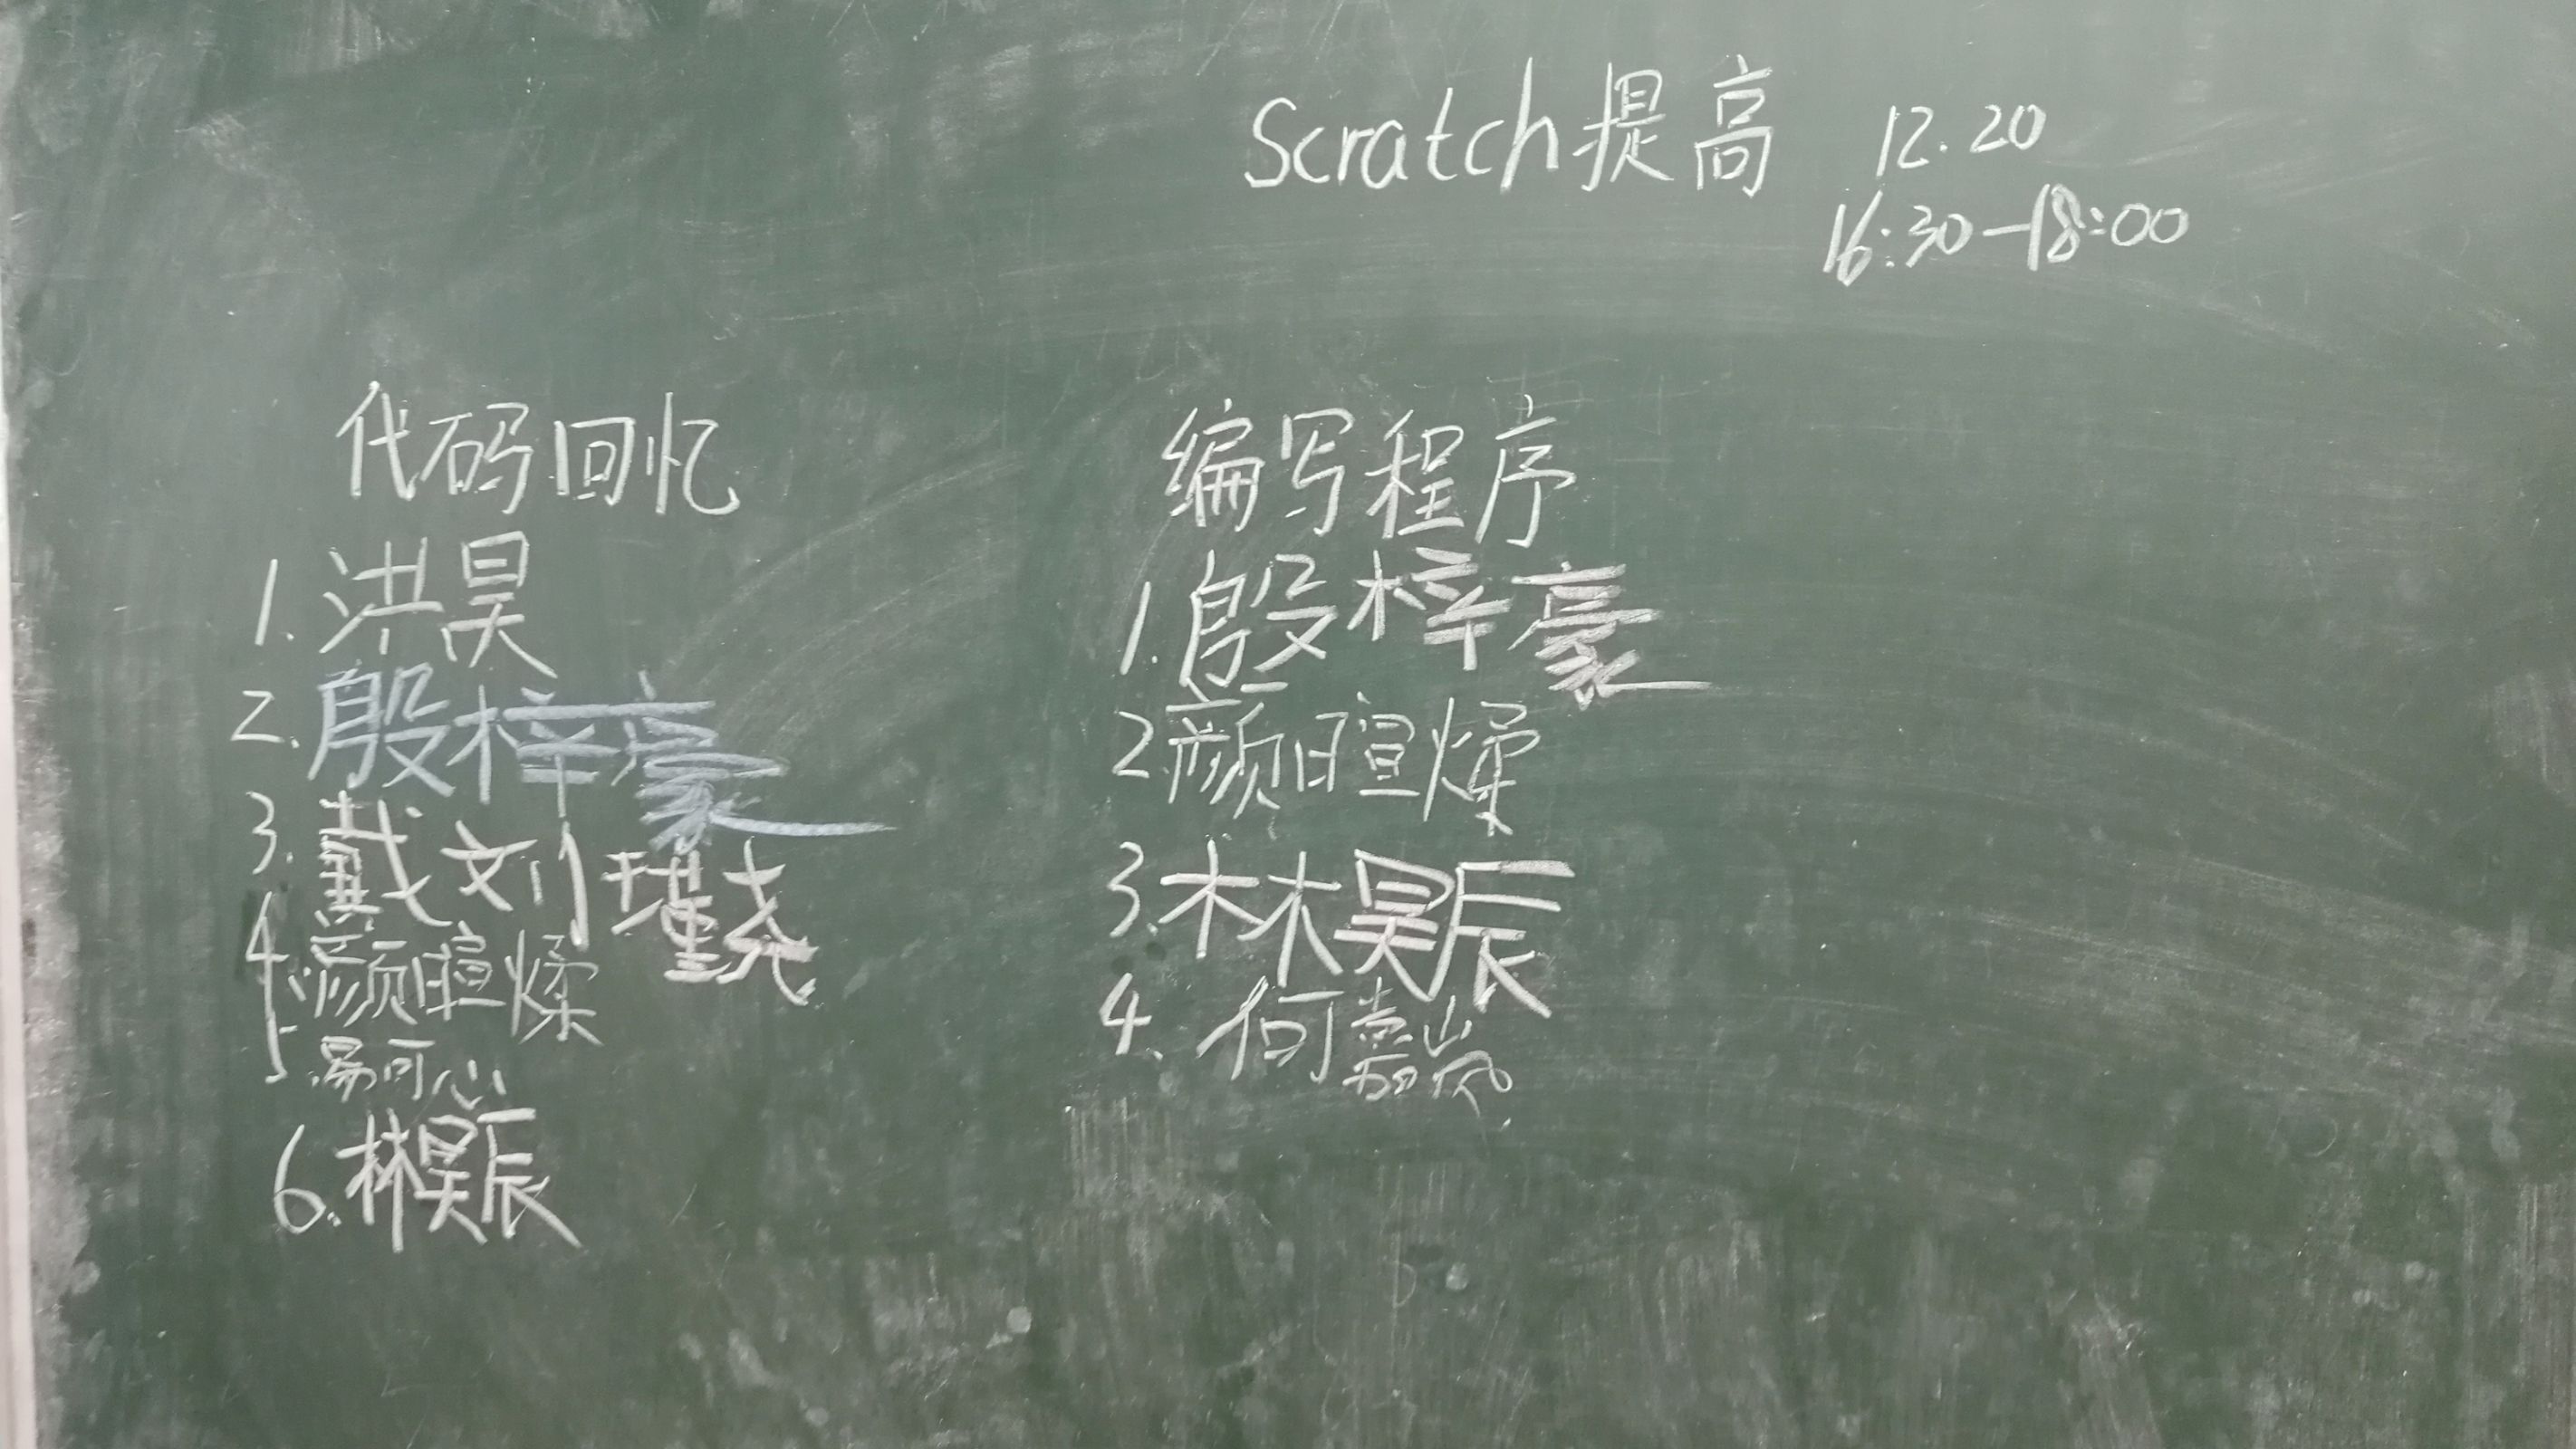 Scratch提高 12.20
16:30—18:00
代码回忆
1. 洪昊
2. 殷梓豪
3. 戴刘瑾尧
4. 颜暄煣
5 易可心
6. 林昊辰
编写程序
1. 殷梓豪
2. 颜暄煣
3. 林昊辰
4. 何嘉岚